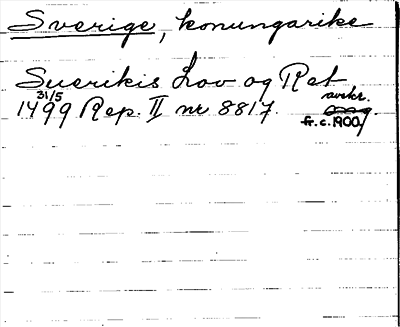 Sverige, konungarike
Suerikis Lov og Ret
31/5
1499 Rep. II nr 8817.
avskr.
fr. c. 1900.